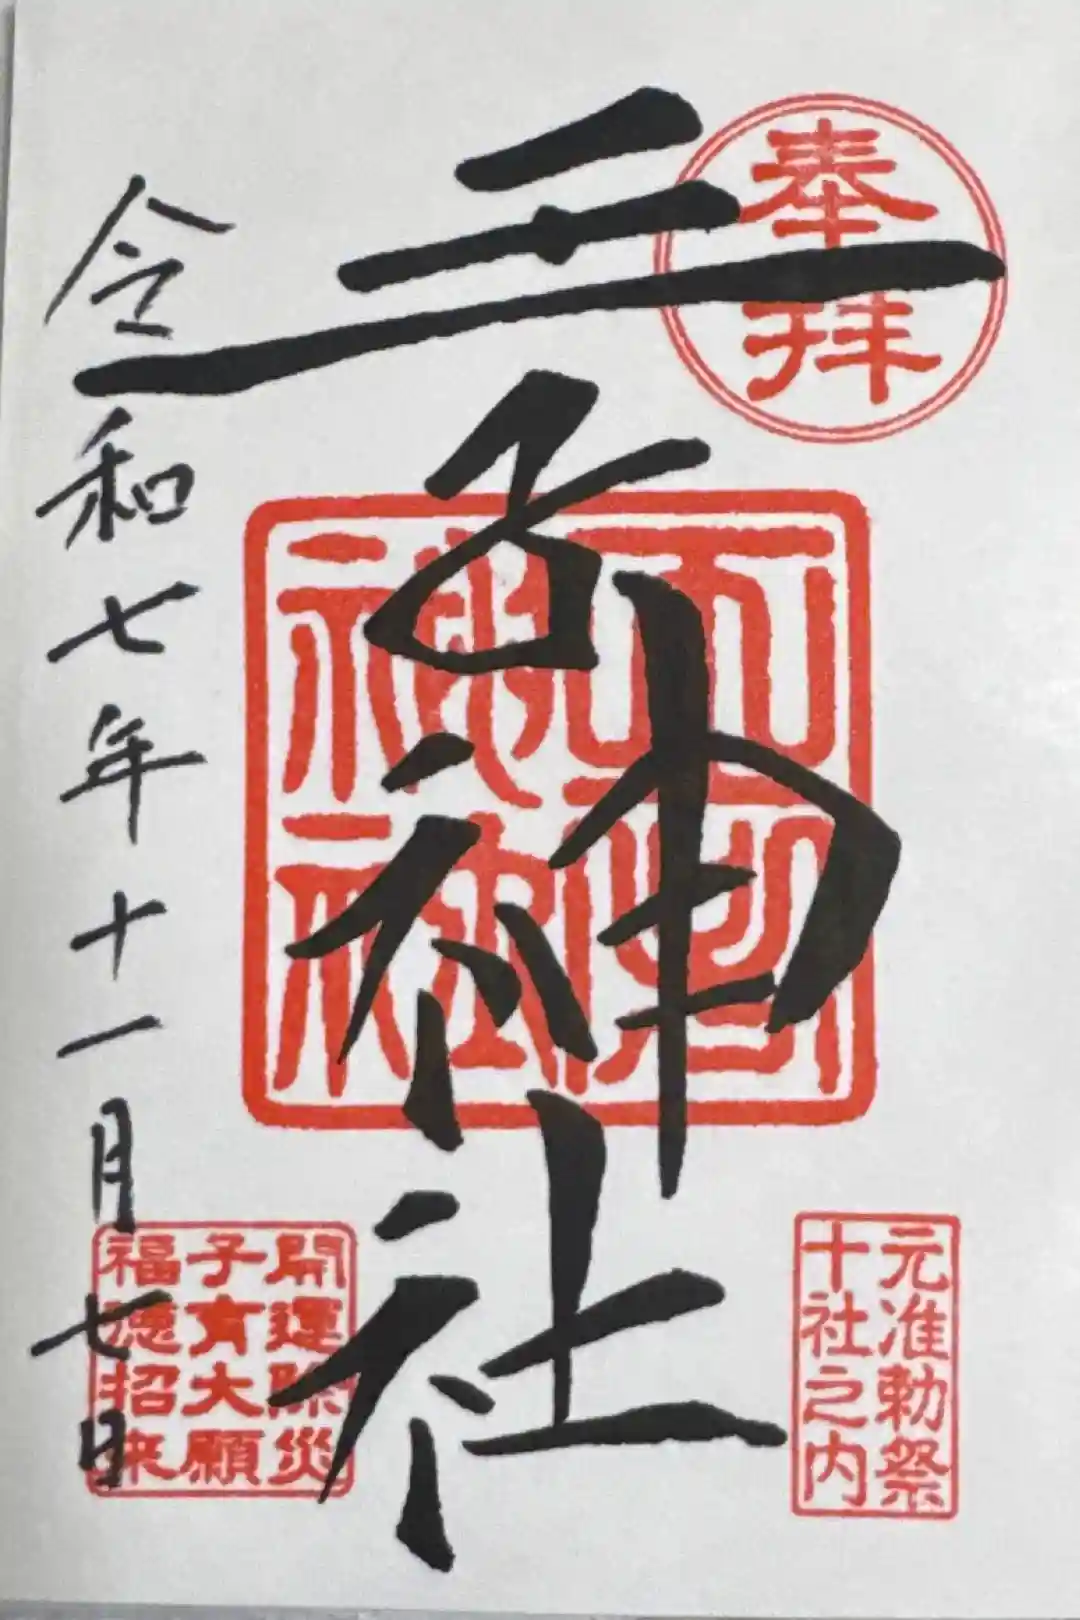 奉拝
元准勅祭
十社之内
王子神社
開運除災
子育大願
福徳招来
令和七年十一月七日